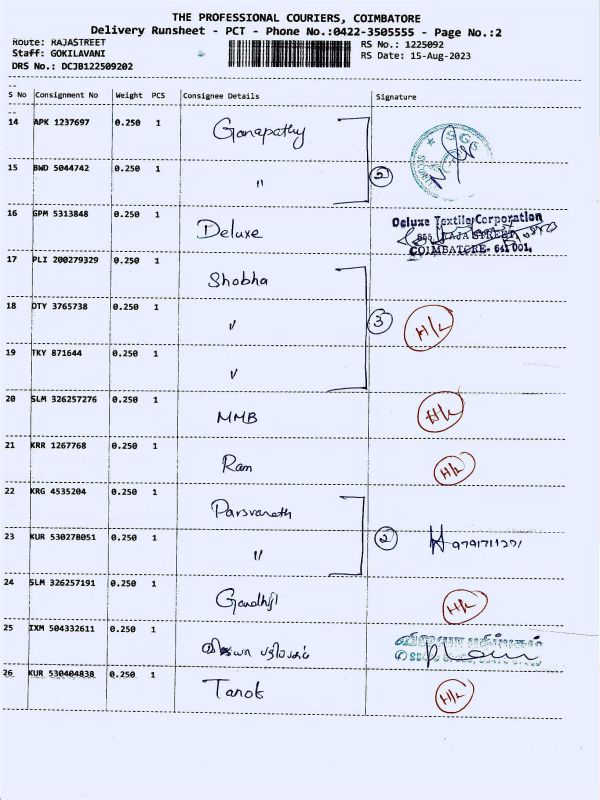 THE PROFESSIONAL COURIERS, COIMBATORE
Delivery Runsheet - PCT - Phone No.:0422-3505555 - Page No.:2
Route: RAJASTREET
Staff: GOKILAVANI
DRS No.: DCJB122509202
RS No.: 1225092
RS Date: 15-Aug-2023
S No Consignment No Weight PCS Consignee Details Signature
14 APK 1237697 0.250 1 Ganapathy
15 BWD 5044742 0.250 1 " 2
16 GPM 5313848 0.250 1 Deluxe
Deluxe Textile Corporation
855, RAJA STREET,
COIMBATORE- 641 001.
17 PLI 200279329 0.250 1 Shobha
18 DTY 3765738 0.250 1 " 3 H/L
19 TKY 871644 0.250 1 "
20 SLM 326257276 0.250 1 MMB H/L
21 KRR 1267768 0.250 1 Ram H/L
22 KRG 4535204 0.250 1 Parsvanath
23 KUR 530278051 0.250 1 " 2
24 SLM 326257191 0.250 1 Gandhiji H/L
25 IXM 504332611 0.250 1
26 KUR 530404838 0.250 1 H/L